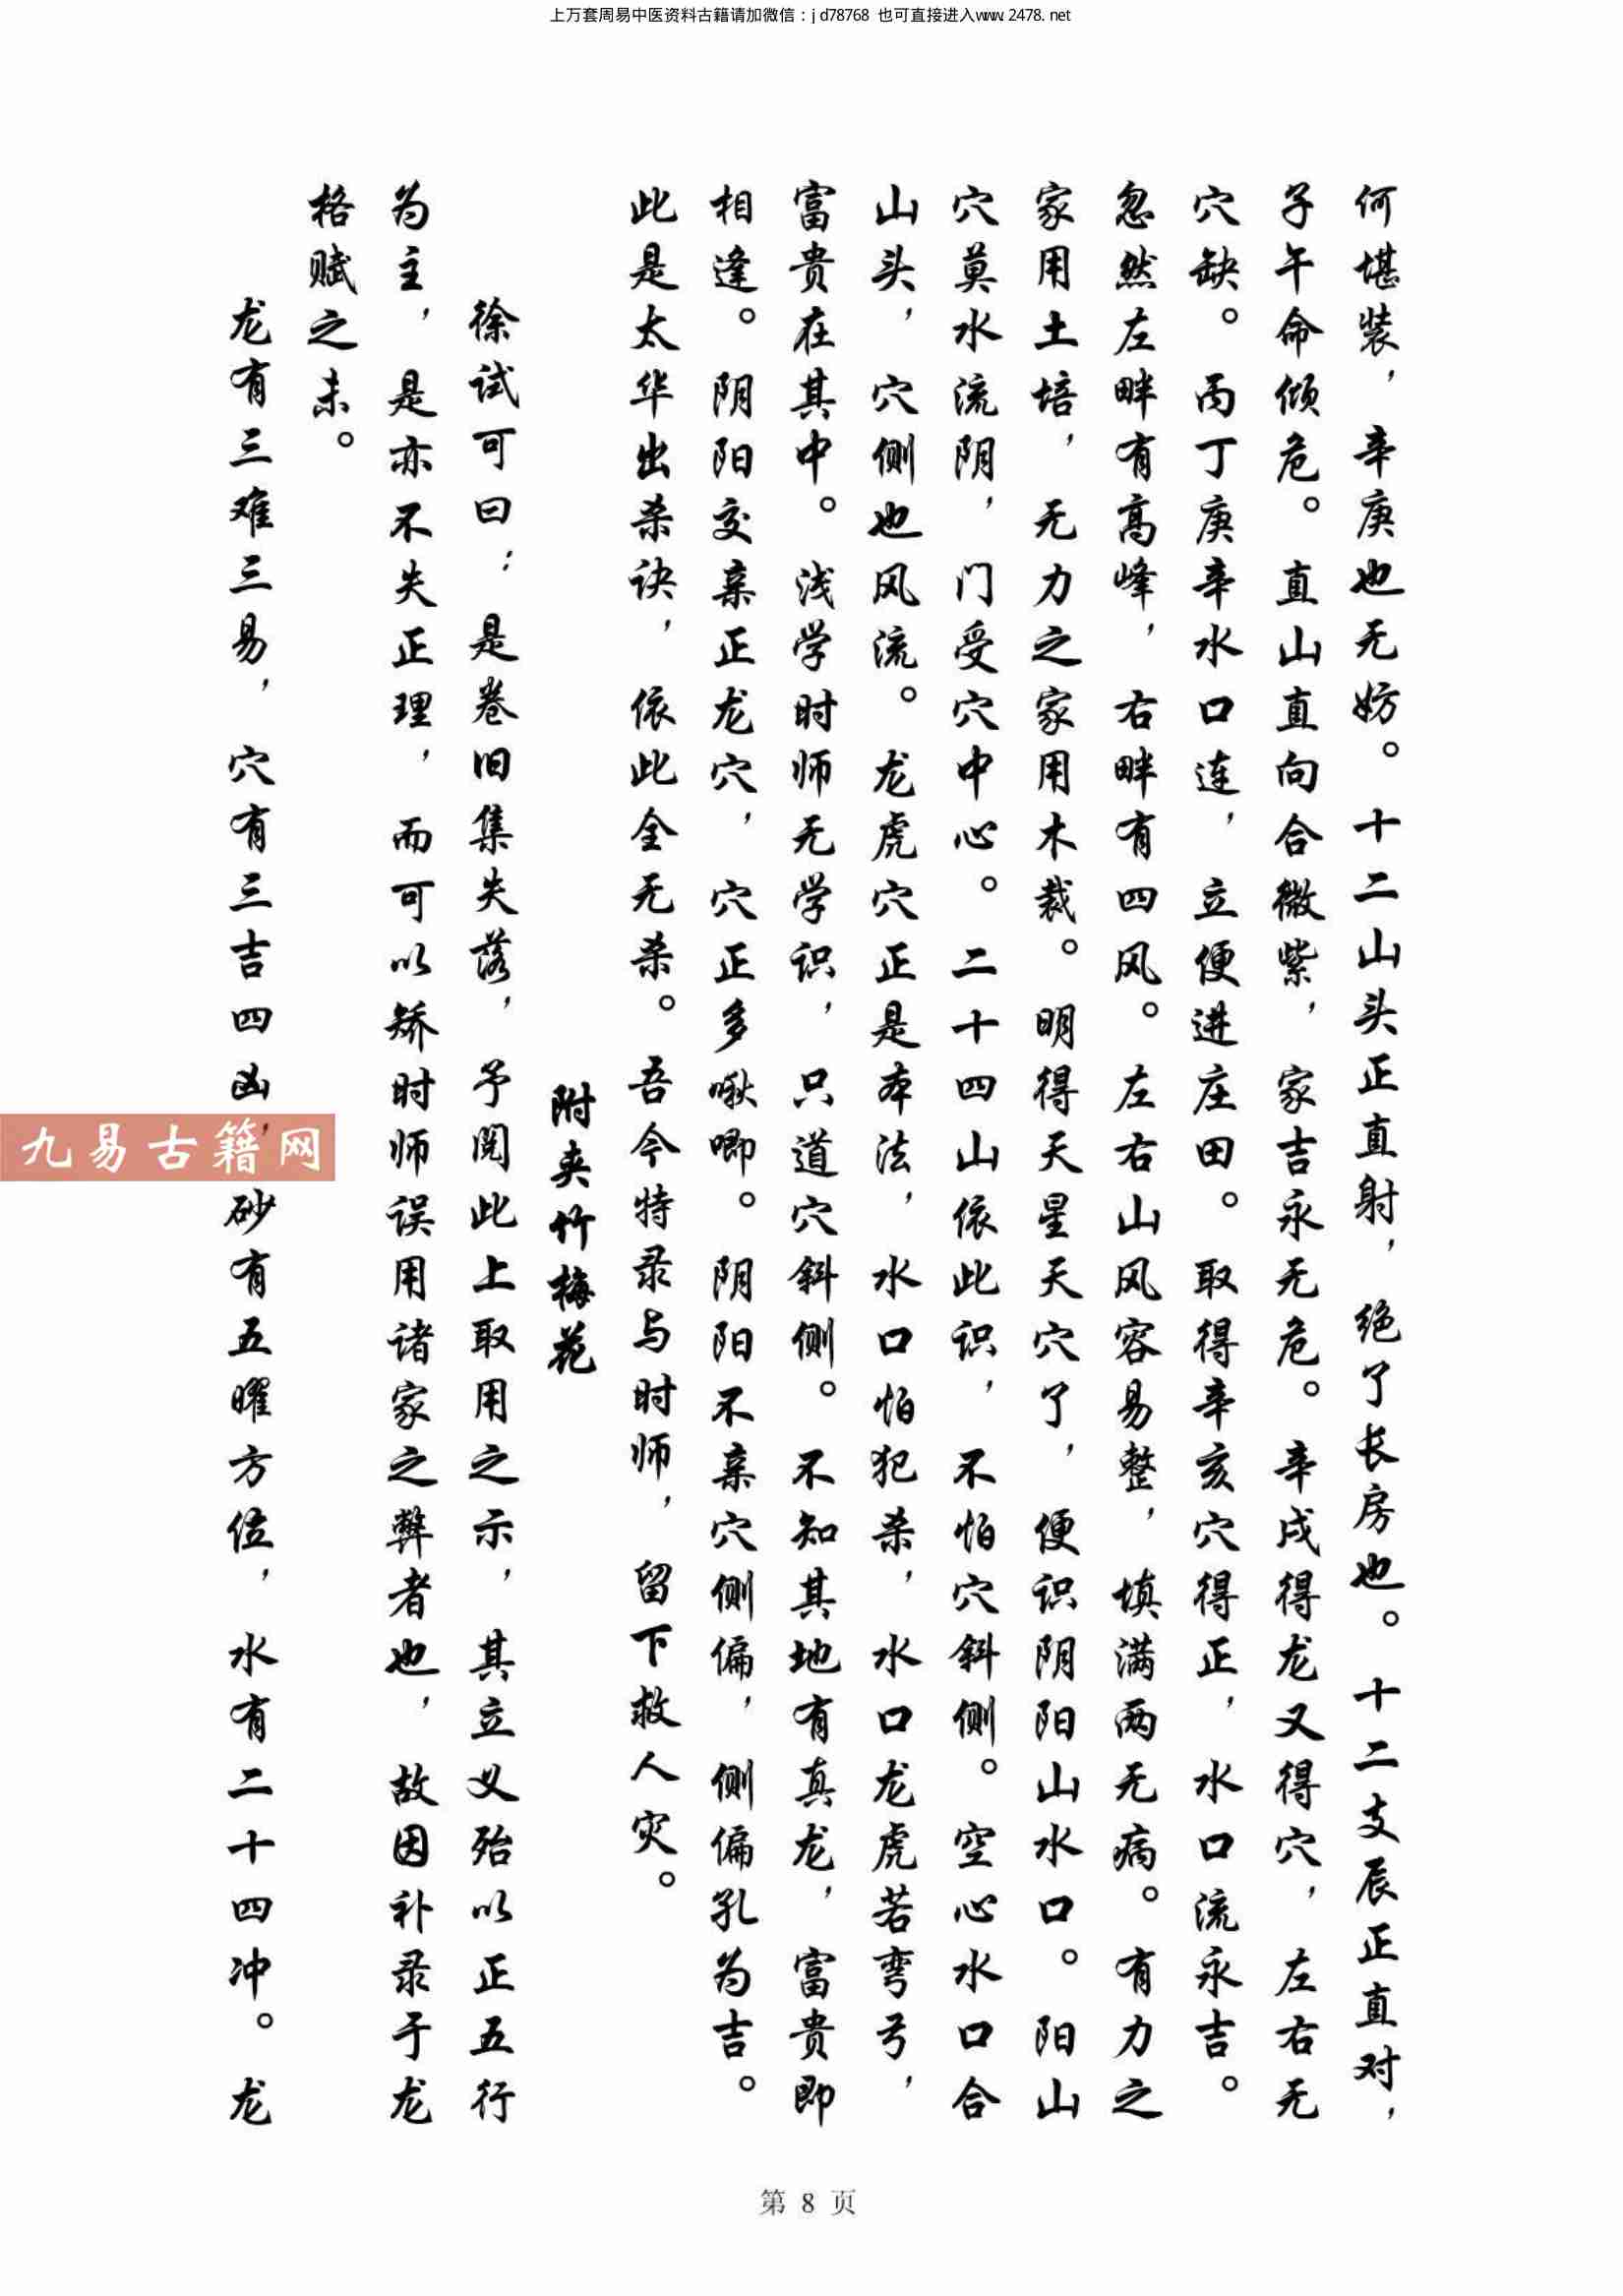 上万套周易中医资料古籍请加微信：jd78768 也可直接进入www.2478.net
何堪装，辛庚也无妨。十二山头正直射，绝了长房也。十二支辰正直对，
子午命倾危。直山直向合微紫，家吉永无危。辛戌得龙又得穴，左右无
穴缺。丙丁庚辛水口连，立便进庄田。取得辛亥穴得正，水口流永吉。
忽然左畔有高峰，右畔有四风。左右山风容易整，填满两无病。有力之
家用土培，无力之家用木裁。明得天星天穴了，便识阴阳山水口。阳山
穴莫水流阴，门受穴中心。二十四山依此识，不怕穴斜侧。空心水口合
山头，穴侧也风流。龙虎穴正是本法，水口怕犯杀，水口龙虎若弯弓，
富贵在其中。浅学时师无学识，只道穴斜侧。不知其地有真龙，富贵即
相逢。阴阳交亲正龙穴，穴正多啾唧。阴阳不亲穴侧偏，侧偏孔为吉。
此是太华出杀诀，依此全无杀。吾今特录与时师，留下救人灾。
附夹竹梅花
徐试可曰：是卷旧集失落，予阅此上取用之示，其立义殆以正五行
为主，是亦不失正理，而可以矫时师误用诸家之弊者也，故因补录于龙
格赋之未。
龙有三难三易，穴有三吉四凶，砂有五曜方位，水有二十四冲。龙
九易古籍网
第 8 页